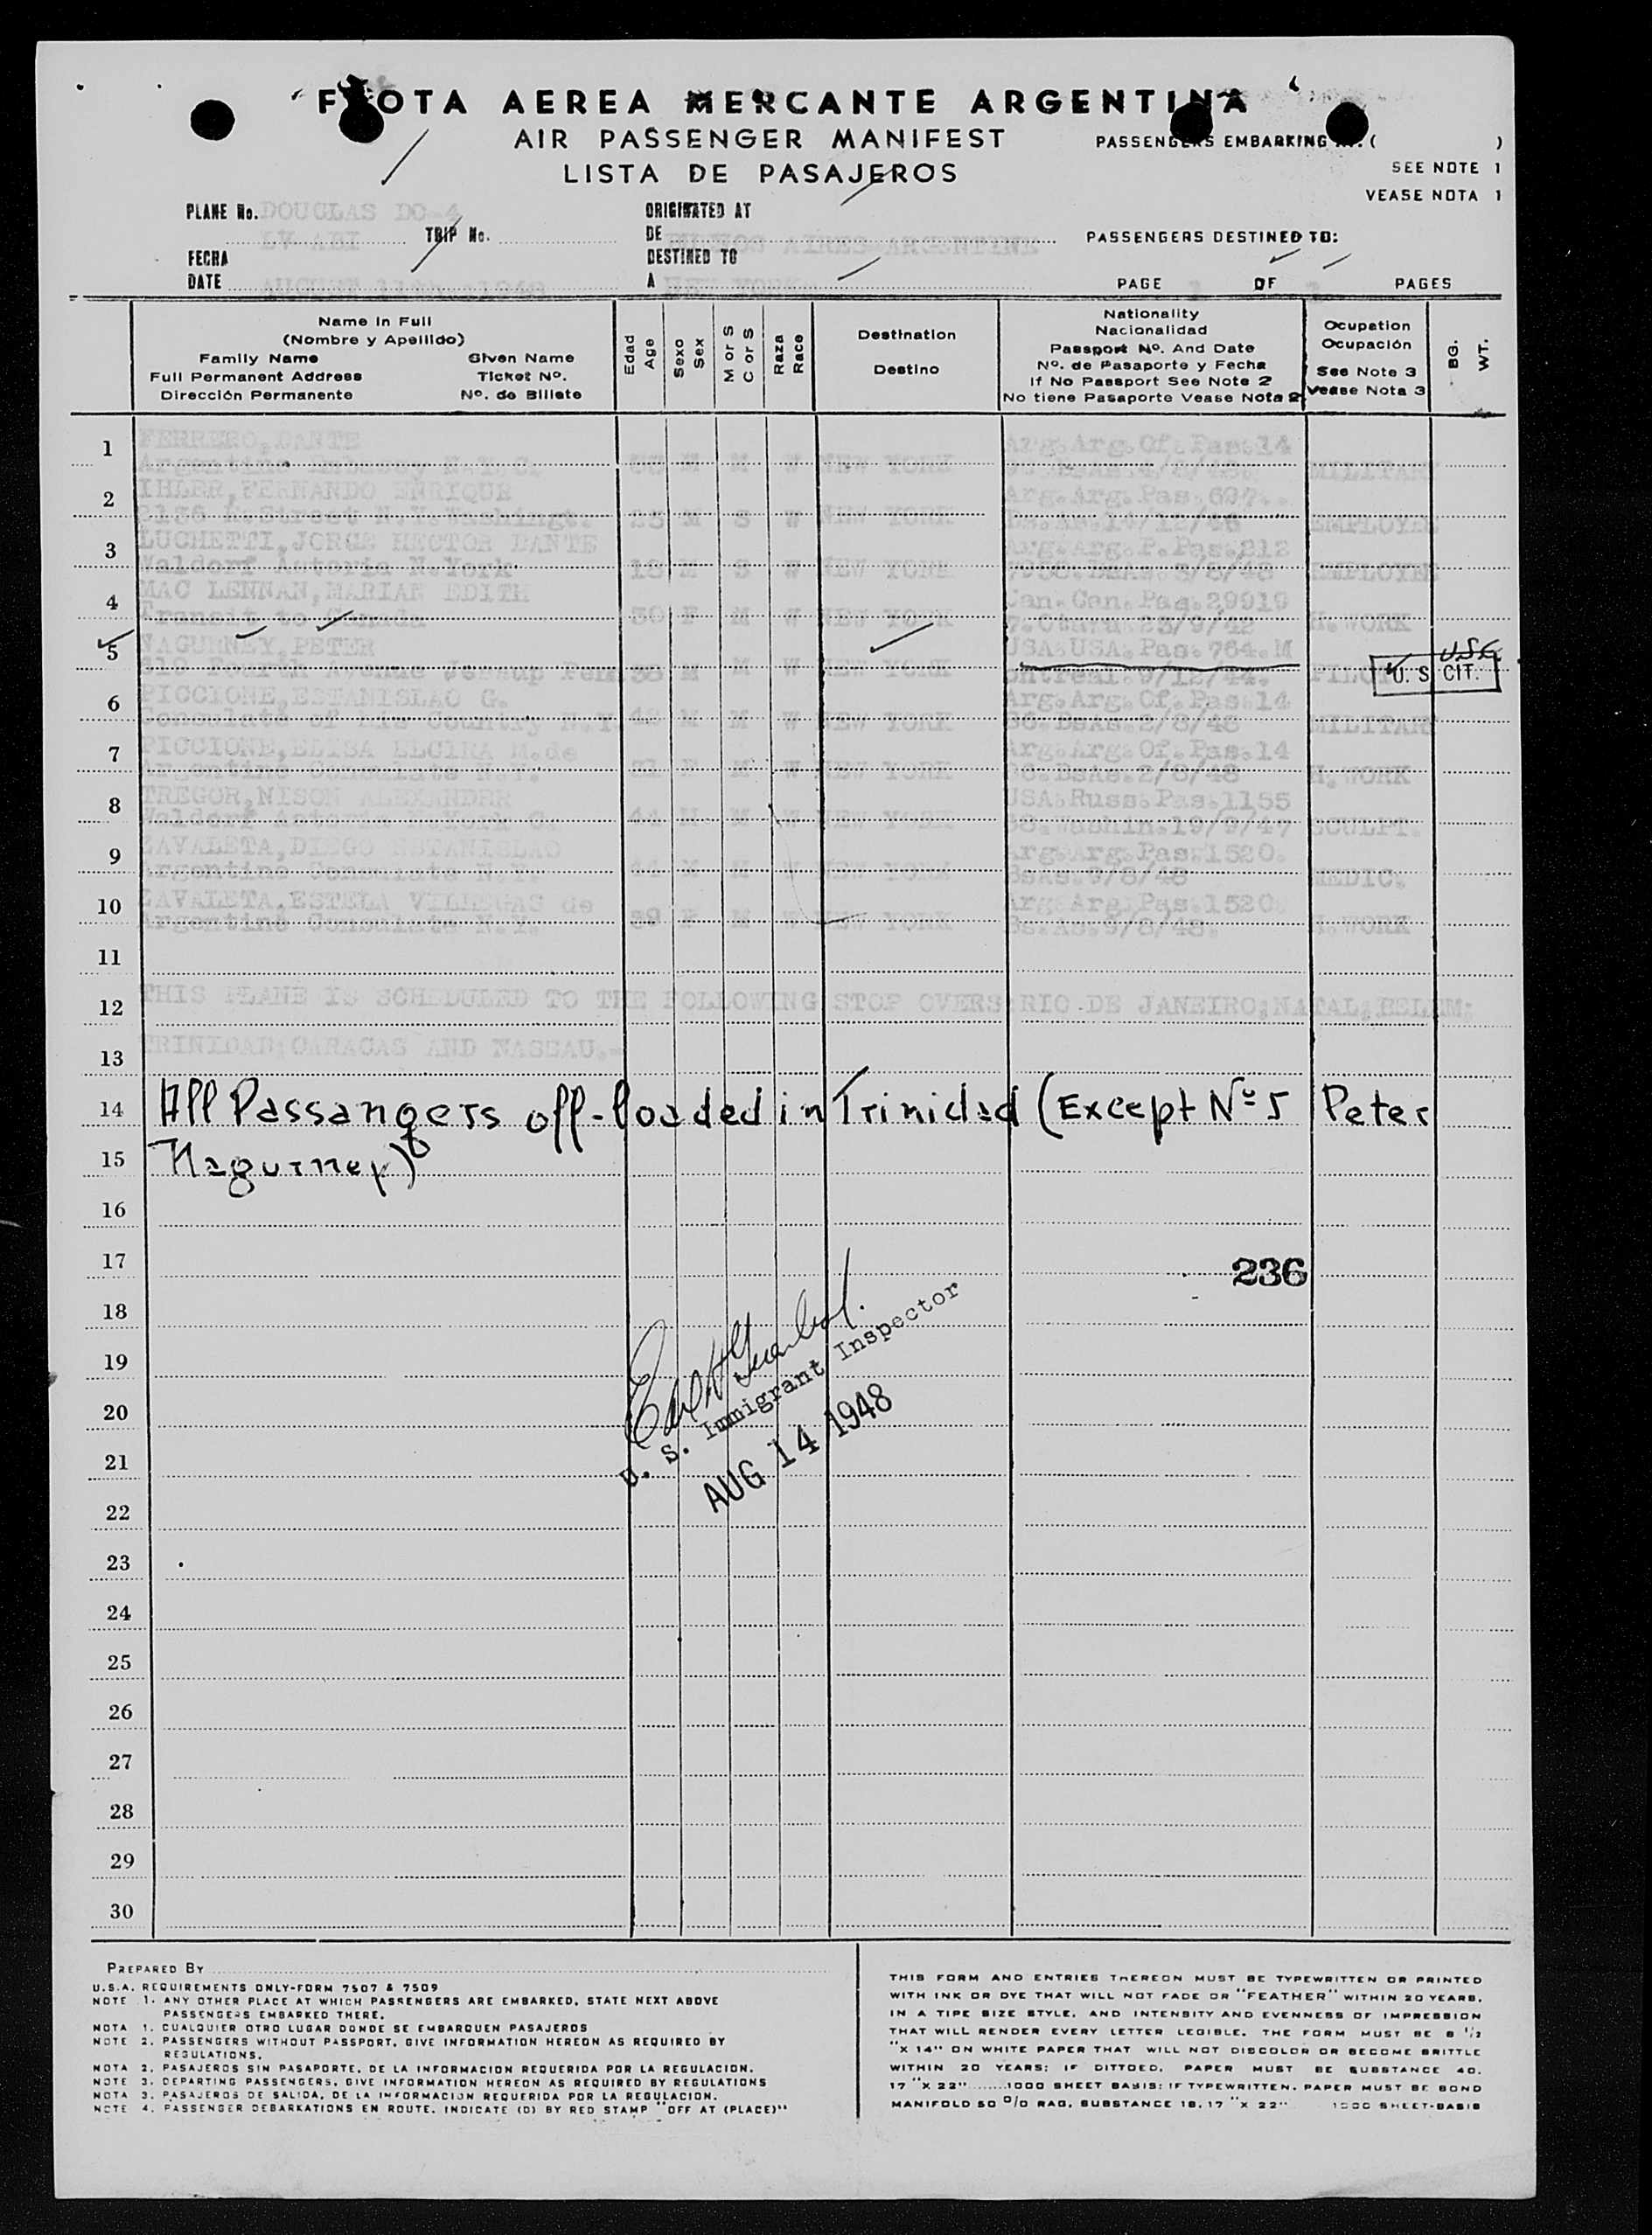 FLOTA AEREA MERCANTE ARGENTINA
AIR PASSENGER MANIFEST
PASSENGERS EMBARKING AT: ( )
LISTA DE PASAJEROS
SEE NOTE 1
VEASE NOTA 1
PLANE No. DOUGLAS DC-4
ORIGINATED AT
LV ABI TRIP No.
DE BUENOS AIRES ARGENTINE
PASSENGERS DESTINED TO:
FECHA
DESTINED TO
DATE AUGUST 11th. 1948
A NEW YORK
PAGE 1 OF PAGES
Name in Full
(Nombre y Apellido)
Family Name Given Name
Full Permanent Address Ticket Nº.
Dirección Permanente Nº. de Billete
Edad
Age
Sexo
Sex
M or S
C or S
Raza
Race
Destination
Destino
Nationality
Nacionalidad
Passport Nº. And Date
Nº. de Pasaporte y Fecha
If No Passport See Note 2
No tiene Pasaporte Vease Nota 2
Ocupation
Ocupación
See Note 3
Vease Nota 3
BG.
WT.
1 FERRERO, DANTE Arg. Arg. Of. Pas. 14
Argentine Embassy N.Y.C. M M W NEW YORK BsAs. 4/8/48. MILITAR
2 IHLER, FERNANDO ENRIQUE Arg. Arg. Pas. 697.
2136 N. Street N.Y. Washingt. 23 M S W NEW YORK Bs. As. 14/12/46 EMPLOYEE
3 LUCHETTI, JORGE HECTOR DANTE Arg. Arg. P. Pas. 212
Waldorf Astoria N. York 18 M S W NEW YORK BsAs. 3/8/48 EMPLOYEE
4 MAC LENNAN, MARIAN EDITH Can. Can. Pas. 29919
Transit to Canada 30 F M W NEW YORK 7. Otawa 23/9/42 H. WORK
5 NAGURNEY, PETER USA. USA. Pas. 764. M USC
619 Fourth Avenue Jessup Pen. 38 M M W NEW YORK ontreal. 9/12/44. PILOT U. S. CIT.
6 PICCIONE, ESTANISLAO G. Arg. Arg. Of. Pas. 14
Consulate of His Country N.Y. 42 M M W NEW YORK 36. BsAs. 2/8/48 MILITAR
7 PICCIONE, ELISA ELCIRA M. de Arg. Arg. Of. Pas. 14
Argentine Consulate N.Y. 31 F M W NEW YORK 36. BsAs. 2/8/48 H. WORK
8 TREGOR, NISON ALEXANDER USA. Russ. Pas. 1155
Waldorf Astoria N. York C. 44 M M W NEW YORK 68. Washin. 19/9/47 SCULPT.
9 ZAVALETA, DIEGO ESTANISLAO Arg. Arg. Pas. 1520.
Argentine Consulate N.Y. 44 M M W NEW YORK BsAs. 9/8/48 MEDIC.
10 ZAVALETA, ESTELA VILLEGAS de Arg. Arg. Pas. 1520.
Argentine Consulate N.Y. 39 F M W NEW YORK Bs. As. 9/8/48. H. WORK
11
12 THIS PLANE IS SCHEDULED TO THE FOLLOWING STOP OVERS: RIO DE JANEIRO; NATAL; BELEM;
13 TRINIDAD; CARACAS AND NASSAU.-
14 All Passangers off-loaded in Trinidad (Except Nº 5 Peter
15 Nagurney)
16
17 236
18
19
20
21
U. S. Immigrant Inspector
AUG 14 1948
22
23
24
25
26
27
28
29
30
PREPARED BY
U.S.A. REQUIREMENTS ONLY-FORM 7507 & 7509
NOTE 1. ANY OTHER PLACE AT WHICH PASSENGERS ARE EMBARKED, STATE NEXT ABOVE
PASSENGERS EMBARKED THERE.
NOTA 1. CUALQUIER OTRO LUGAR DONDE SE EMBARQUEN PASAJEROS
NOTE 2. PASSENGERS WITHOUT PASSPORT, GIVE INFORMATION HEREON AS REQUIRED BY
REGULATIONS.
NOTA 2. PASAJEROS SIN PASAPORTE, DE LA INFORMACION REQUERIDA POR LA REGULACION.
NOTE 3. DEPARTING PASSENGERS, GIVE INFORMATION HEREON AS REQUIRED BY REGULATIONS
NOTA 3. PASAJEROS DE SALIDA, DE LA INFORMACION REQUERIDA POR LA REGULACION.
NOTE 4. PASSENGER DEBARKATIONS EN ROUTE, INDICATE (D) BY RED STAMP "OFF AT (PLACE)"
THIS FORM AND ENTRIES THEREON MUST BE TYPEWRITTEN OR PRINTED
WITH INK OR DYE THAT WILL NOT FADE OR "FEATHER" WITHIN 20 YEARS,
IN A TIPE SIZE STYLE, AND INTENSITY AND EVENNESS OF IMPRESSION
THAT WILL RENDER EVERY LETTER LEGIBLE. THE FORM MUST BE 8 1/2
"X 14" ON WHITE PAPER THAT WILL NOT DISCOLOR OR BECOME BRITTLE
WITHIN 20 YEARS; IF DITTOED, PAPER MUST BE SUBSTANCE 40.
17 "X 22" ...... 1000 SHEET BASIS: IF TYPEWRITTEN, PAPER MUST BE BOND
MANIFOLD 50 0/0 RAG, SUBSTANCE 18, 17 "X 22" 1000 SHEET-BASIS